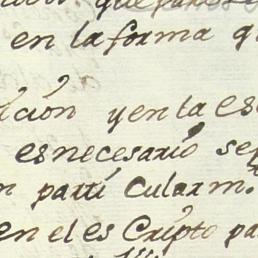 en la forma
ición yen la es
es necesario se
parti cularm.
en el es Cripto pa